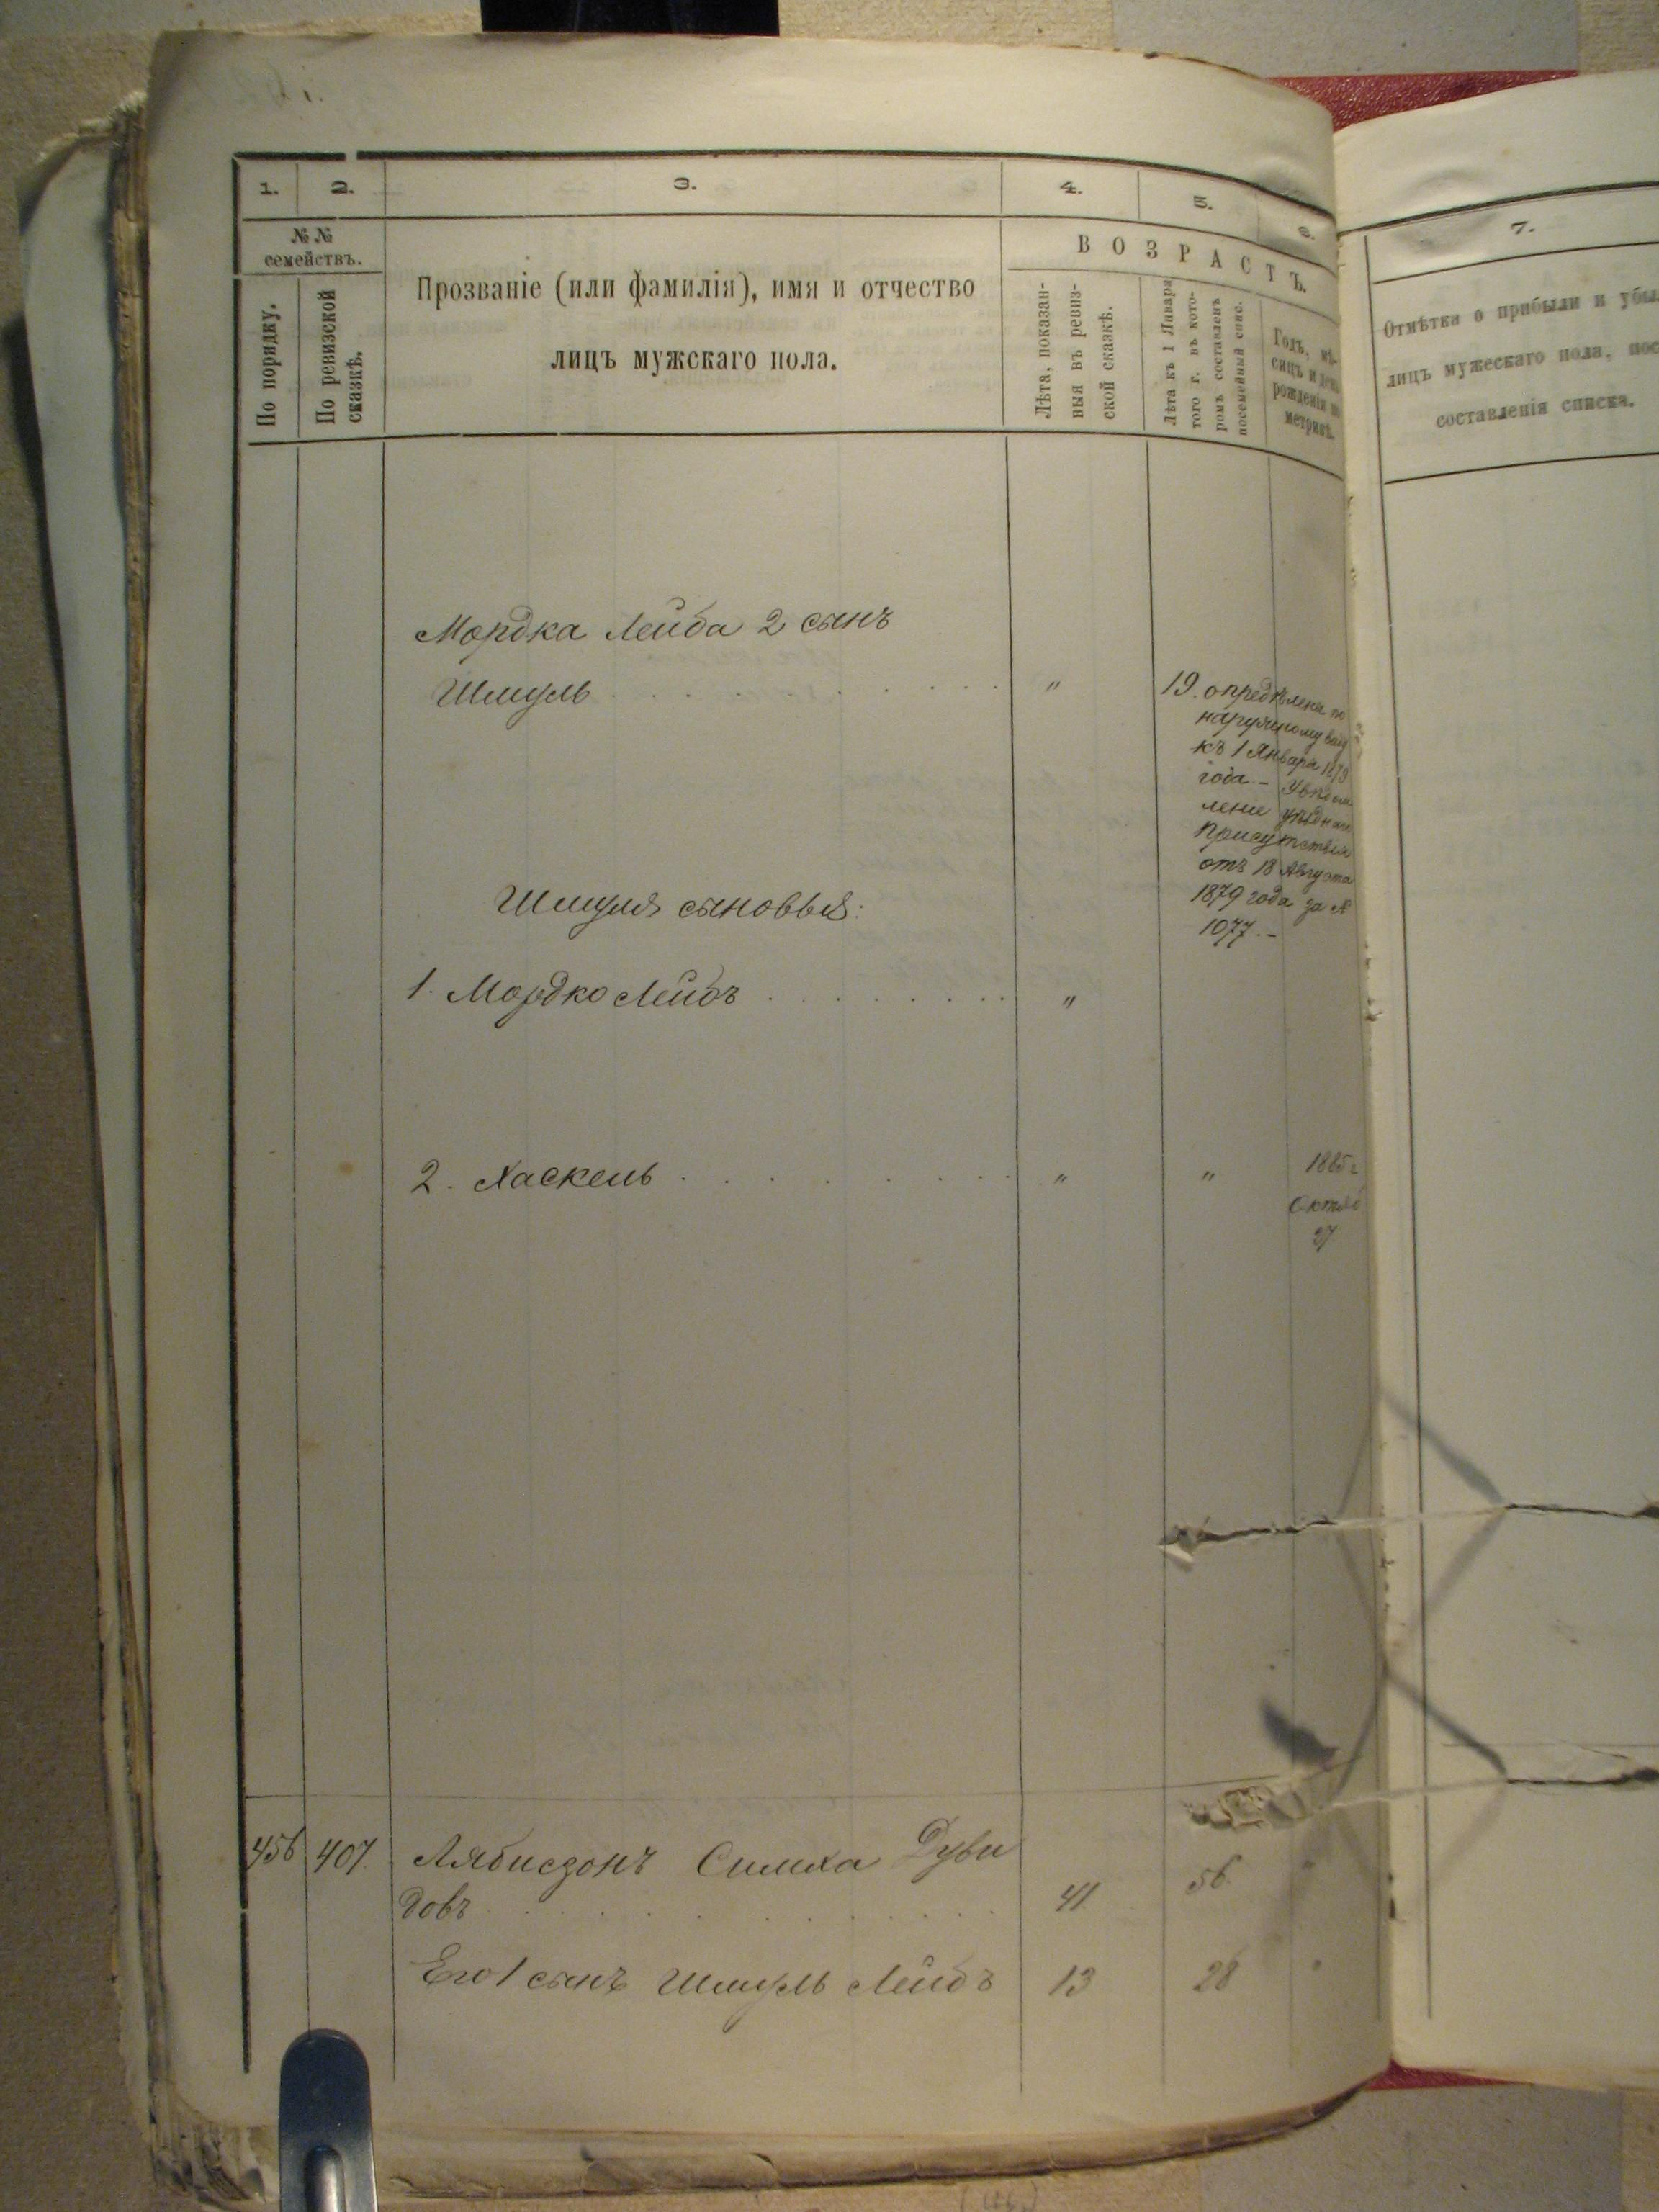 1.
2.
3.
4.
5.
6.
7.
№ №
семействъ.
По порядку.
По ревизской
сказкѣ.
Прозваніе (или фамилія), имя и отчество
лицъ мужскаго пола.
ВОЗРАСТЪ.
Лѣта, показан-
ныя въ ревиз-
ской сказкѣ.
Лѣта къ 1 Января
того г. въ кото-
ромъ составленъ
посемейный спис.
Годъ, мѣ-
сяцъ и день
рожденія по
метрикѣ.
Отмѣтка о прибыли и убы
лицъ мужескаго пола, пос
составленія списка.
Мордка Лейба 2 сынъ
Шмуль . . . . . . . . "
19. опредѣленъ по
наружному виду
къ 1 Января 1879
года. – Увѣдом
леніе уѣднаго
присутствія
отъ 18 Августа
1879 года за №
1077. –
Шмуля сыновья:
1. Мордко Лейбъ . . . . . . . "
2. Хаскель . . . . . . . . " " 1885 г
Октяб
27
456 407. Лябисзонъ Симха Дуви
довъ . . . . . . . . 41. 56. "
Его 1 сынъ Шмуль Лейбъ 13 28 "